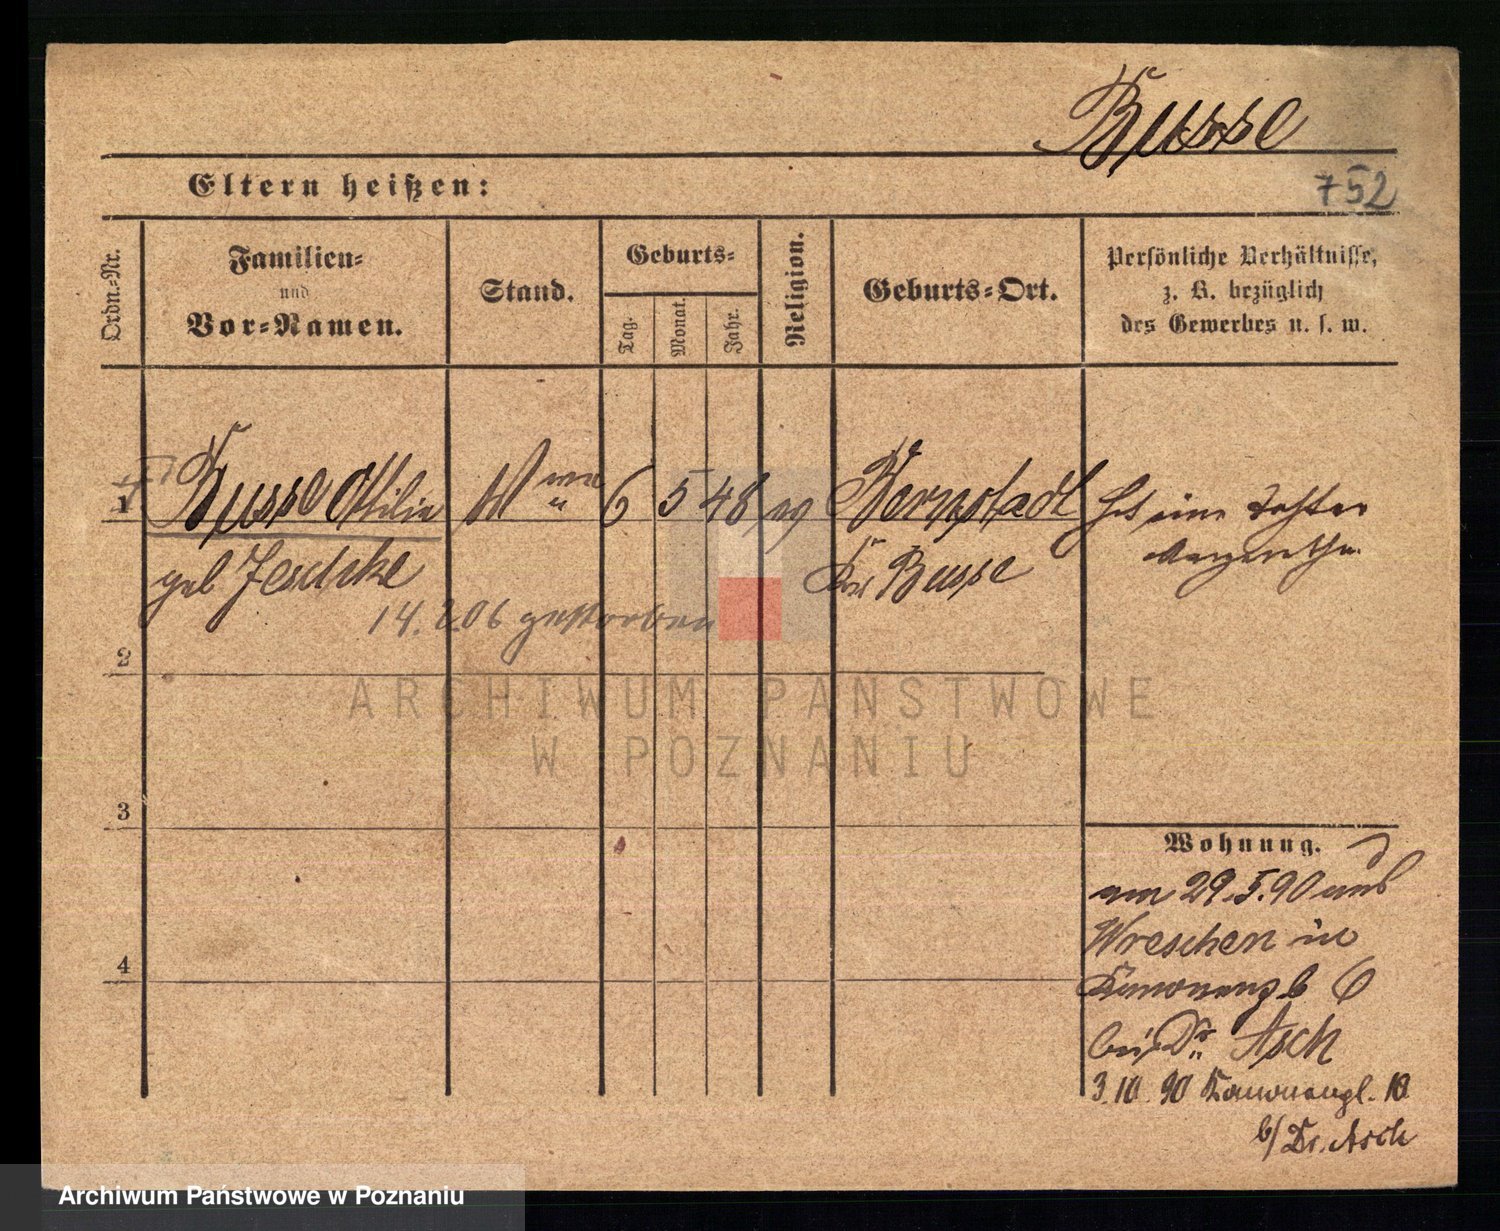 Busse
Eltern heißen:
752
Ordn.-Nr.
Familien-
und
Vor-Namen.
Stand.
Geburts-
Tag.
Monat.
Jahr.
Religion.
Geburts-Ort.
Persönliche Verhältnisse,
z. B. bezüglich
des Gewerbes u. s. w.
1 Busse Ottilie Wwe 6 5 48 ev Bernstadt Hat eine Tochter
geb Jeschke Busse Margarethe
14. 2 06 gestorben
2
ARCHIWUM PAŃSTWOWE
W POZNANIU
3
Wohnung.
am 29.5.90 aus
Wreschen in
6
bei Dr Asch
3.10.90 Kanonenpl. 10
b/ Dr. Asch
4
Archiwum Państwowe w Poznaniu